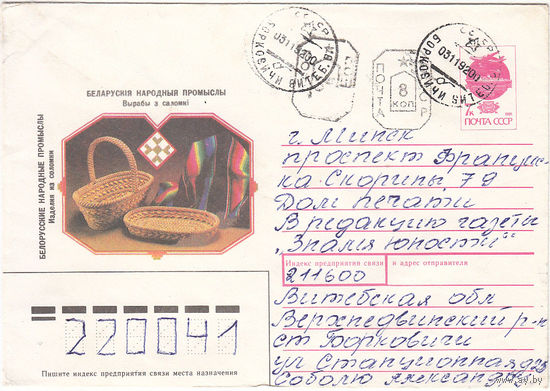 БЕЛАРУСКІЯ НАРОДНЫЯ ПРОМЫСЛЫ
Вырабы з саломкі
БЕЛОРУССКИЕ НАРОДНЫЕ ПРОМЫСЛЫ
Изделия из соломки
БОРКОВИЧИ ВИТЕБ.
СССР
ПОЧТА
8
КОП
СССР
БОРКОВИЧИ ВИТЕБ.
7к ПОЧТА СССР
г. Минск
проспект Францис-
ка Скорины, 79
Дом печати
В редакцию газеты
„Знамя юности"
Индекс предприятия связи и адрес отправителя
211600
Витебская обл
Верхнедвинский р-н
ст Борковичи
ул Станционная д 23
Соболь Александр
220041
Пишите индекс предприятия связи места назначения